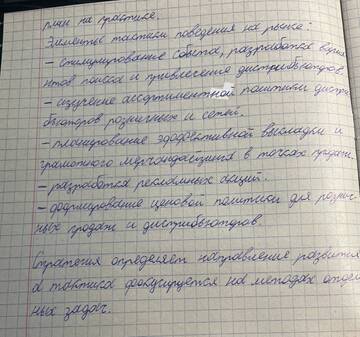 план на практике.
Элементы тактики поведения на рынке:
- стимулирование сбыта, разработка вариа
нтов поиска и привлечения дистрибьюторов.
- изучение ассортиментной политики дистри
бьюторов розничных и сетей.
- планирование эффективной выкладки и
грамотного мерчандайзинга в точках продаж.
- разработка рекламных акций.
- формирование ценовой политики для рознич
ных продаж и дистрибьюторов.
Стратегия определяет направление развития
а тактика фокусируется на методах отдель
ных задач.